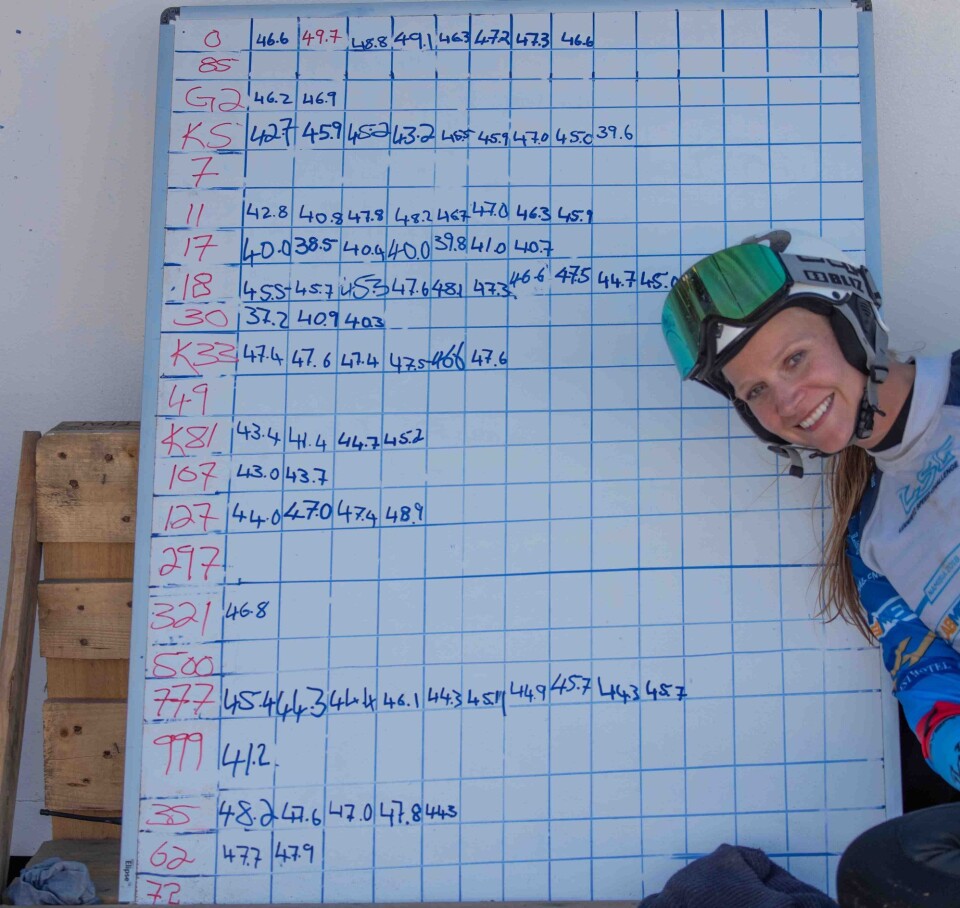 0 46.6 49.7 48.8 49.1 46.3 47.2 47.3 46.6
85
G2 46.2 46.9
K5 42.7 45.9 45.2 43.2 45.5 45.9 47.0 45.0 39.6
7
11 42.8 40.8 47.8 48.2 46.7 47.0 46.3 45.9
17 40.0 38.5 40.4 40.0 39.8 41.0 40.7
18 45.5 45.7 45.3 47.6 48.1 47.3 46.6 47.5 44.7 45.0
30 37.2 40.9 40.3
K33 47.4 47.6 47.4 47.5 46.6 47.6
49
K81 43.4 41.4 44.7 45.2
107 43.0 43.7
127 44.0 47.0 47.4 48.9
297
321 46.8
500
777 45.4 44.3 44.4 46.1 44.3 45.1 44.9 45.7 44.3 45.7
999 41.2
35 48.2 47.6 47.0 47.8 44.3
62 47.7 47.9
72
Elipse
BLIZ
LSC
HOTEL